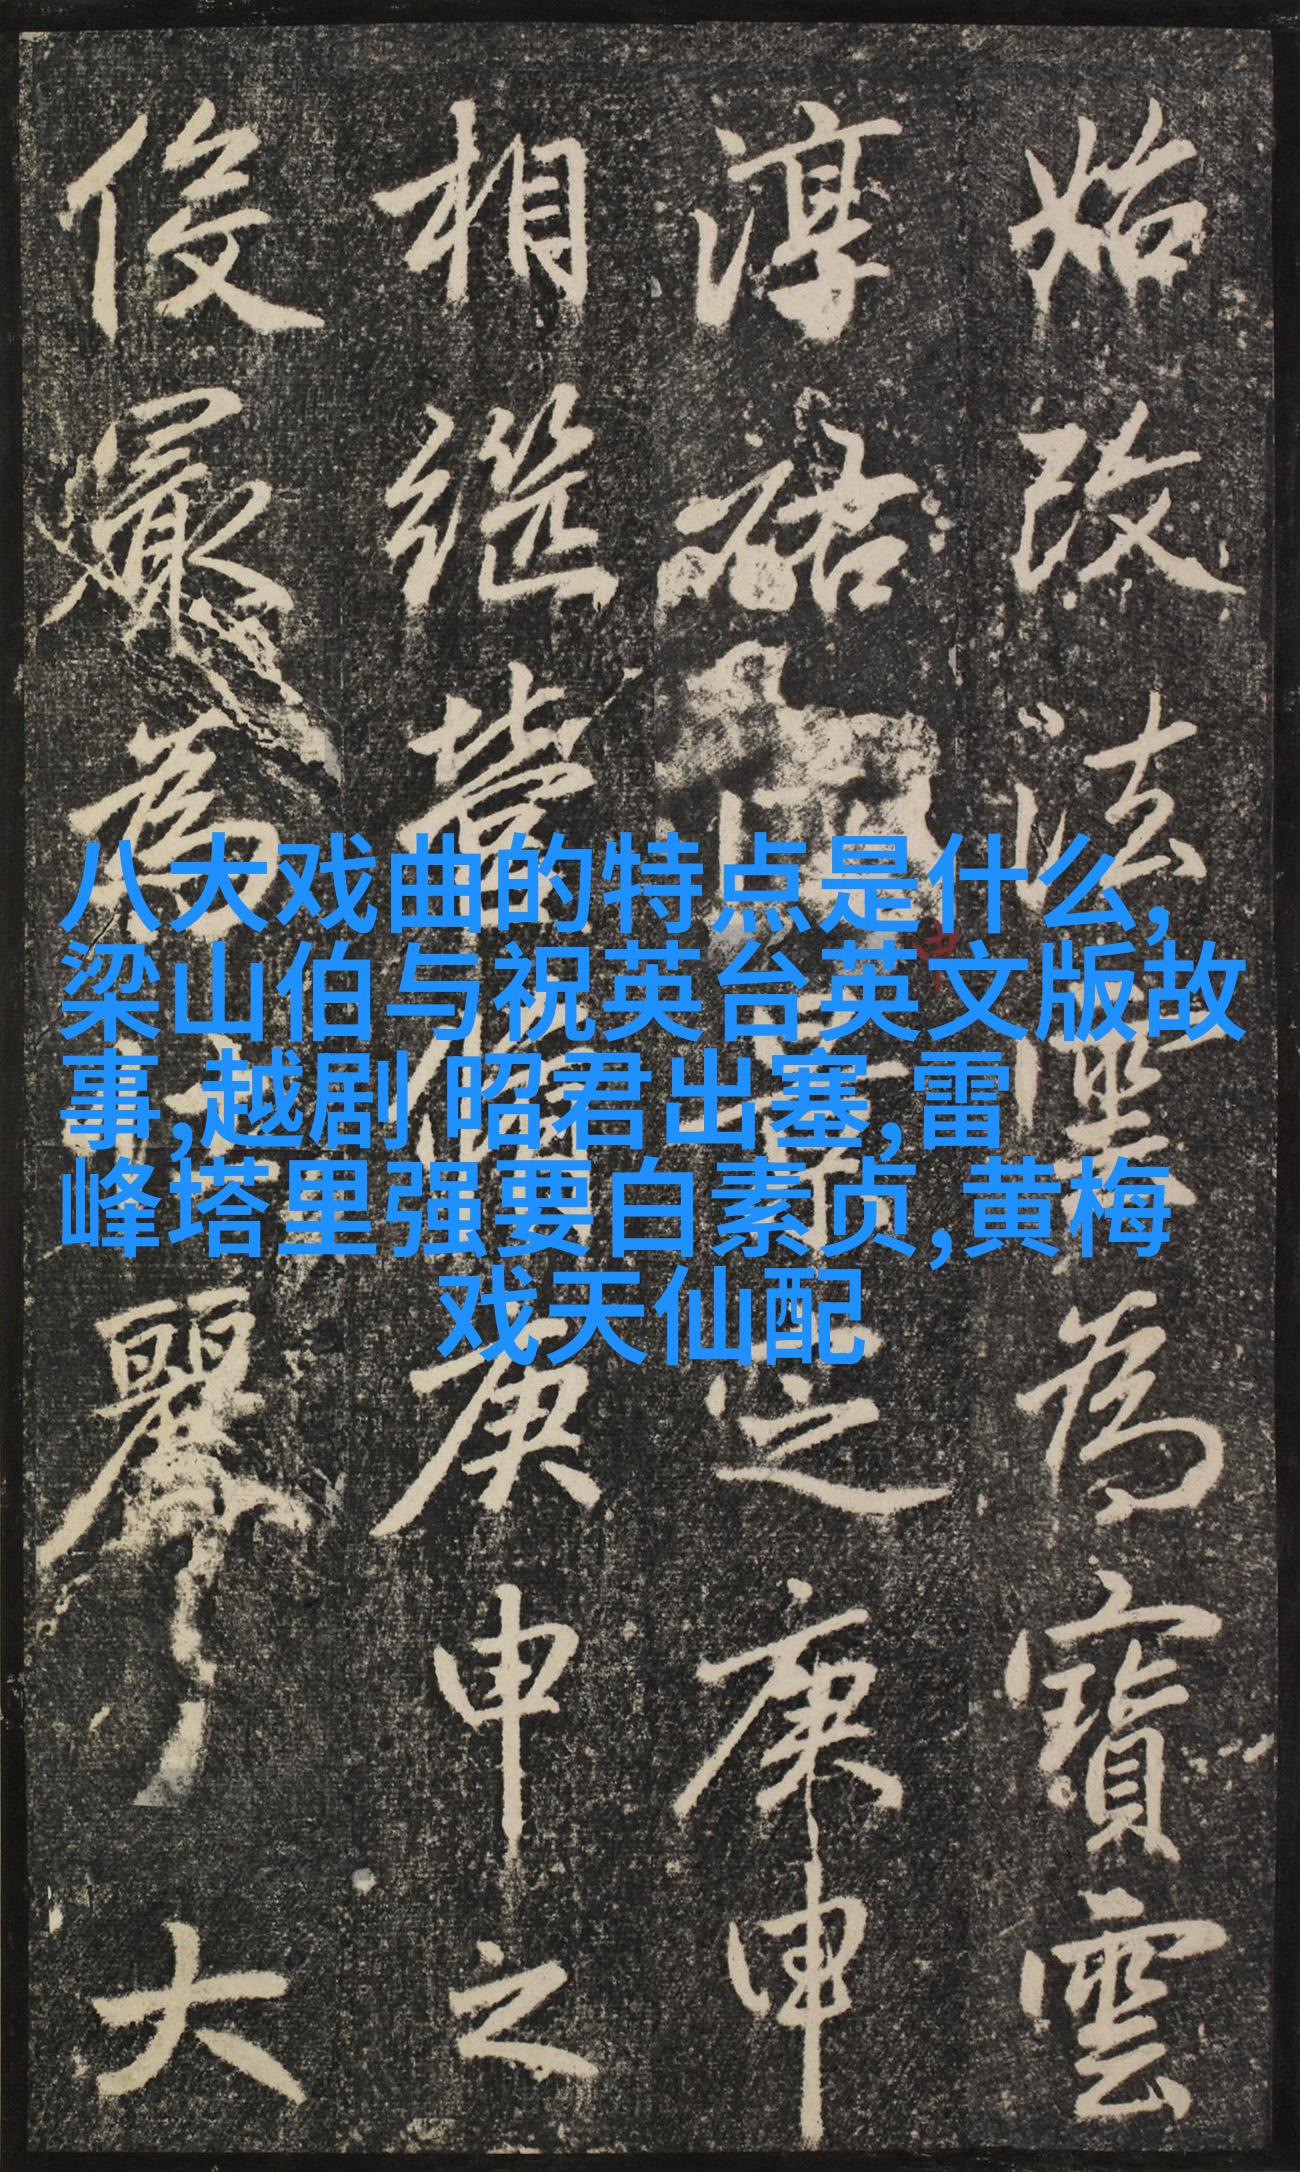 始改法為寶雲
淳祐之庚申
相繼庚申之
役最為麗大
八大戏曲的特点是什么,
梁山伯与祝英台英文版故
事,越剧 昭君出塞,雷
峰塔里强要白素贞,黄梅
戏天仙配